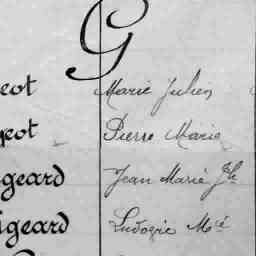 G
eot Marie Julien
peot Pierre Marie
geard Jean Marie Jh
igeard Ludovic Mie